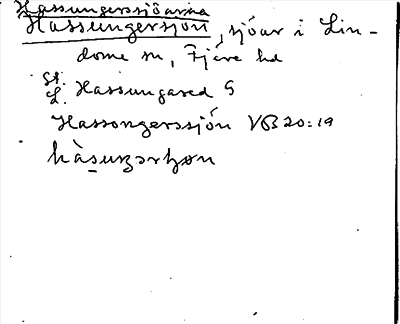 Hassungerssjöarna
Hassungersjön, sjöar i Lin-
dome sn, Fjäre hd
St. L. Hassungared S
Hassongerssjön VB 20:19